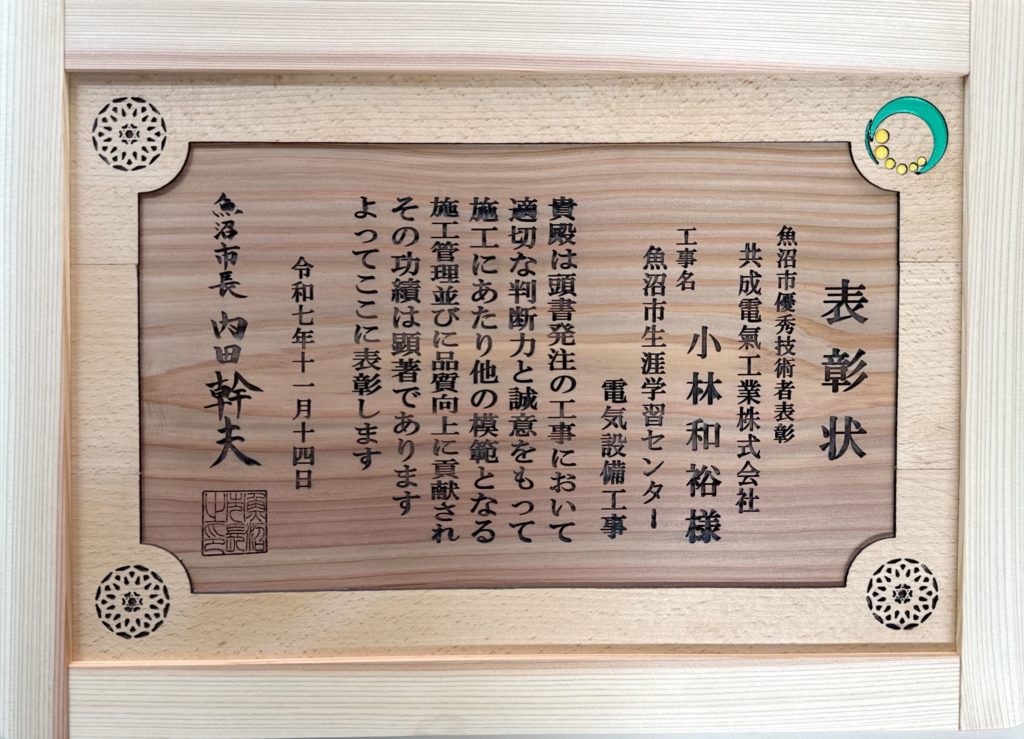 表彰状
魚沼市優秀技術者表彰
共成電氣工業株式会社
小林和裕様
工事名
魚沼市生涯学習センター
電気設備工事
貴殿は頭書発注の工事において
適切な判断力と誠意をもって
施工にあたり他の模範となる
施工管理並びに品質向上に貢献され
その功績は顕著であります
よってここに表彰します
令和七年十一月十四日
魚沼市長 内田幹夫
魚沼市長之印